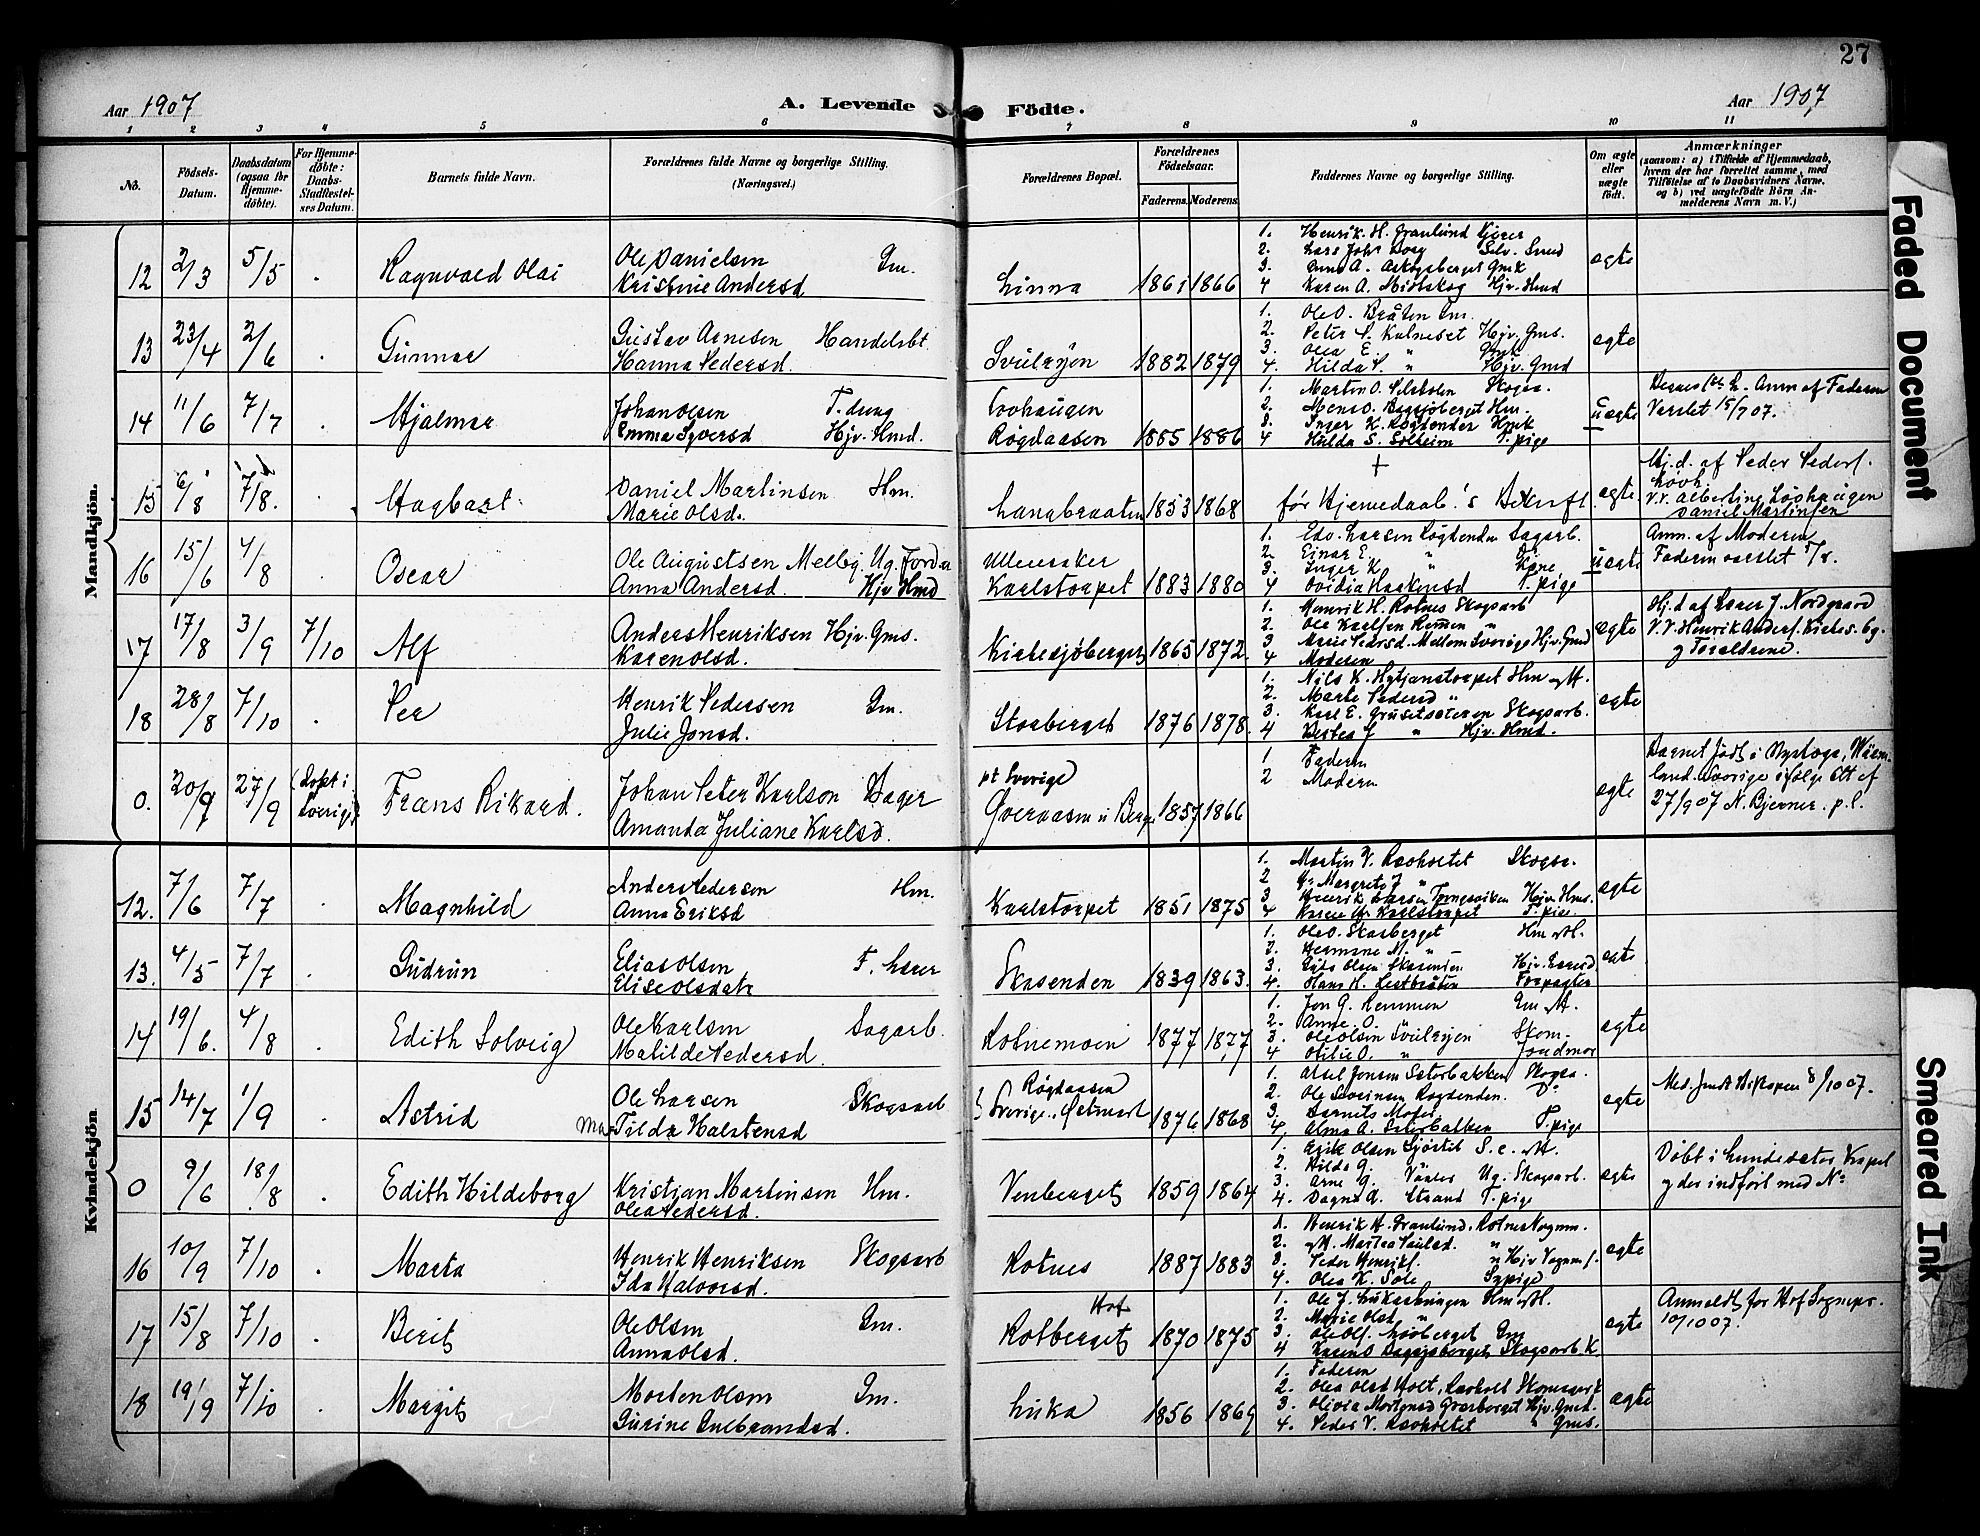 27
Aar 1907
A. Levende Födte.
Aar 1907
1 2 3 4 5 6 7 8 9 10 11
No.
Födsels-Datum.
Daabsdatum (ogsaa for Hjemme-döbte).
For Hjemme-döbte: Daabs-Stadfæstel-ses Datum.
Barnets fulde Navn.
Forældrenes fulde Navne og borgerlige Stilling.
(Næringsvei.)
Forældrenes Bopæl.
Forældrenes Födselsaar.
Faderens. Moderens.
Faddernes Navne og borgerlige Stilling.
Om ægte eller uægte födt.
Anmærkninger
(saasom: a) i Tilfælde af Hjemmedaab,
hvem der har forrettet samme, med
Tilföielse af to Daabsvidners Navne,
og b) ved uægtefödte Börn An-
melderens Navn m. V.)
Mandkjön.
12 2/3 5/5 . Ragnvald Olai
Ole Danielsen Gm.
Kristine Andersd
Linna 1861 1866
1. Henrik H. Granlund
2. Lars Johs
3. Anne A.
4 Karen A. Midtskog Hjv. Hmd
ægte
13 23/4 2/6 . Gunnar
Gustav Arnesen Handelsbt.
Hanna Pedersd.
Svulryen 1882 1879
1. Ole O. Bråten Gm.
2. Peter S. Kalneset Hjv. Gms.
3. Olea E. " Gmk
4. Hilda S. " Hjv. Gmd
ægte
14 11/6 7/7 . Hjalmar
Johan Olsen T. dreng
Emma Syversd Hjv. Hmd.
Lövhaugen
Røgdaasen 1885 1886
1. Martin O. Skogsa.
2. Mons O. Bagsjöberget Hm.
3. Inger K. Røgdenden Hmk
4 Hulda S. Solheim T. pige
uægte
Anm af Faderen
Varslet 15/7 07.
15 6/8 7/8. . Hagbart
Daniel Martinsen Hm.
Marie Olsd.
Langbraaten 1853 1868
+
før Hjemmedaab.'s
ægte
Hj.d. af Peder Peders.
Lövh.
V.V. Albertine Lövhaugen
Daniel Martinsen
16 15/6 4/8 . Oscar
Ole Augustsen Mellbg. Ug. Jorda
Anna Andersd. Hjv. Hmd
Ullensaker
Karlstorpet 1883 1880
1. Edv. Larsen Røgdenden Sagarb.
2. Einar E. "
3. Inger K. " Kone
4 Ovidia Haakensd T. pige
uægte
Anm. af Moderen
Faderen varslet 5/8.
17 17/8 3/9 7/10 Alf
Anders Henriksen Hjv. Gms.
Karen Olsd.
Kirkesjöberget 1865 1872.
1. Henrik H. Rotnes Skogsarb
2. Ole Karlsen Remmen "
3 Marie Pedersd. Mellem Sverige Hjv. Gmd
4 Moderen
ægte
Hj.d af Lærer J. Nordgaard
V.V. Henrik Anders. Kirkes. bg.
og Forældrene.
18 28/8 7/10 . Per
Henrik Pedersen Gm.
Julie Jonsd.
Storberget 1876 1878.
1. Nils K. Hytjanstorpet Hm og H.
2. Marte Pedersd "
3. Karl E. Grusetsæteren Skogsarb.
4 Berthea J " Hjv. Hmd.
ægte
0. 20/7 27/9 (Døbt i Sverige) Frans Rikard.
Johan Peter Karlson Bager
Amanda Juliane Karlsd.
pt Sverige
Øveraasen i Berge 1857 1866
1 Faderen
2 Moderen
ægte
Barnet födt i Nyskoga, Wärm-
land. Sverige ifølge Att af
27/9 07 N. Bjerner. p.l.
Kvindekjön.
12. 7/6 7/7 . Magnhild
Anders Pedersen Hm.
Anna Eriksd
Karlstorpet 1851 1875
1. Martin V. Raaholtet Skogsa.
2 H. Margrete J "
3 Henrik Larsen Tyngsviken Hjv. Hms.
4 Karen A. Karlstorpet T. pige.
ægte
13. 4/5 7/7 . Gudrun
Elias Olsen F. Lærer
Elise Olsdatr
Skasenden 1839 1863.
1. Ole O. Skasberget Hm og H.
2. Hermine M. "
3. Olsen Skasenden
4. Hans H. Forpagter
ægte
14 19/6. 4/8 . Edith Solveig
Ole Karlsen Sagarb.
Matilde Pedersd.
Rotnemoen 1877 1877
1. Jon G. Remmen Gm H.
2. Anne O. "
3. Ole Olsen Svulryen Skom.
4 Otilie O. " Jordmor
ægte
15 14/7 1/9 . Astrid
Ole Larsen Skogsarb
Ma-Tilda Halstensd
Røgdaasen
Sverige. 1876 1868
1 Aksel Jonsen Sæterbakken Skogsa.
2. Ole Severinsen Røgdenden. Do
3. Barnets Moder
4. Alma A. Sæterbakken T. pige
ægte
Med. Jmdt Biskopen 8/10 07.
0 9/6 18/8 . Edith Hildeborg
Kristian Martinsen Hm.
Olea Pedersd.
Venberget 1859 1864
1. Erik Olsen Sjöstil S. e. og H.
2. Hilda G.
3. Arne G. Våler Ug. Skogsarb.
4. Dagny A. Strand T. pige
ægte
Döbt i Lundersæter Kapel
og der indfört med No
16 10/9 7/10 . Marta
Henrik Henriksen Skogsarb
Ida Halvorsd.
Rotnes 1887 1883
1. Henrik H. Granlund. Rotnes Vognm.
2. og H. Martea Paulsd. "
3. Peder Henriks. " Hjv Vognm s.
4. Olea K. Sole Sypige
ægte
17 15/8 7/10 . Berit
Ole Olsen Gm.
Anna Olsd.
Hof
Rotberget 1870 1875
1. Ole J. Lukashaugen Hm og H.
2. Marie Olsd "
3. Ole Ols. Lövberget Gm
4 Karen O Bagsjöberget Skogsarb. K
ægte
Anmeldt for Hof Sognepr.
10/10 07.
18 19/9 7/10 . Margit
Morten Olsen Gm.
Gurine Gulbrandsd.
Luka 1856 1869
1. Faderen
2. Olea Olsd Holt, Raaholt
3. Olivia Mortensd Graaberget Hjv. Gmd.
4. Peder V. Raaholtet " Gms.
ægte
Faded Document
Smeared Ink